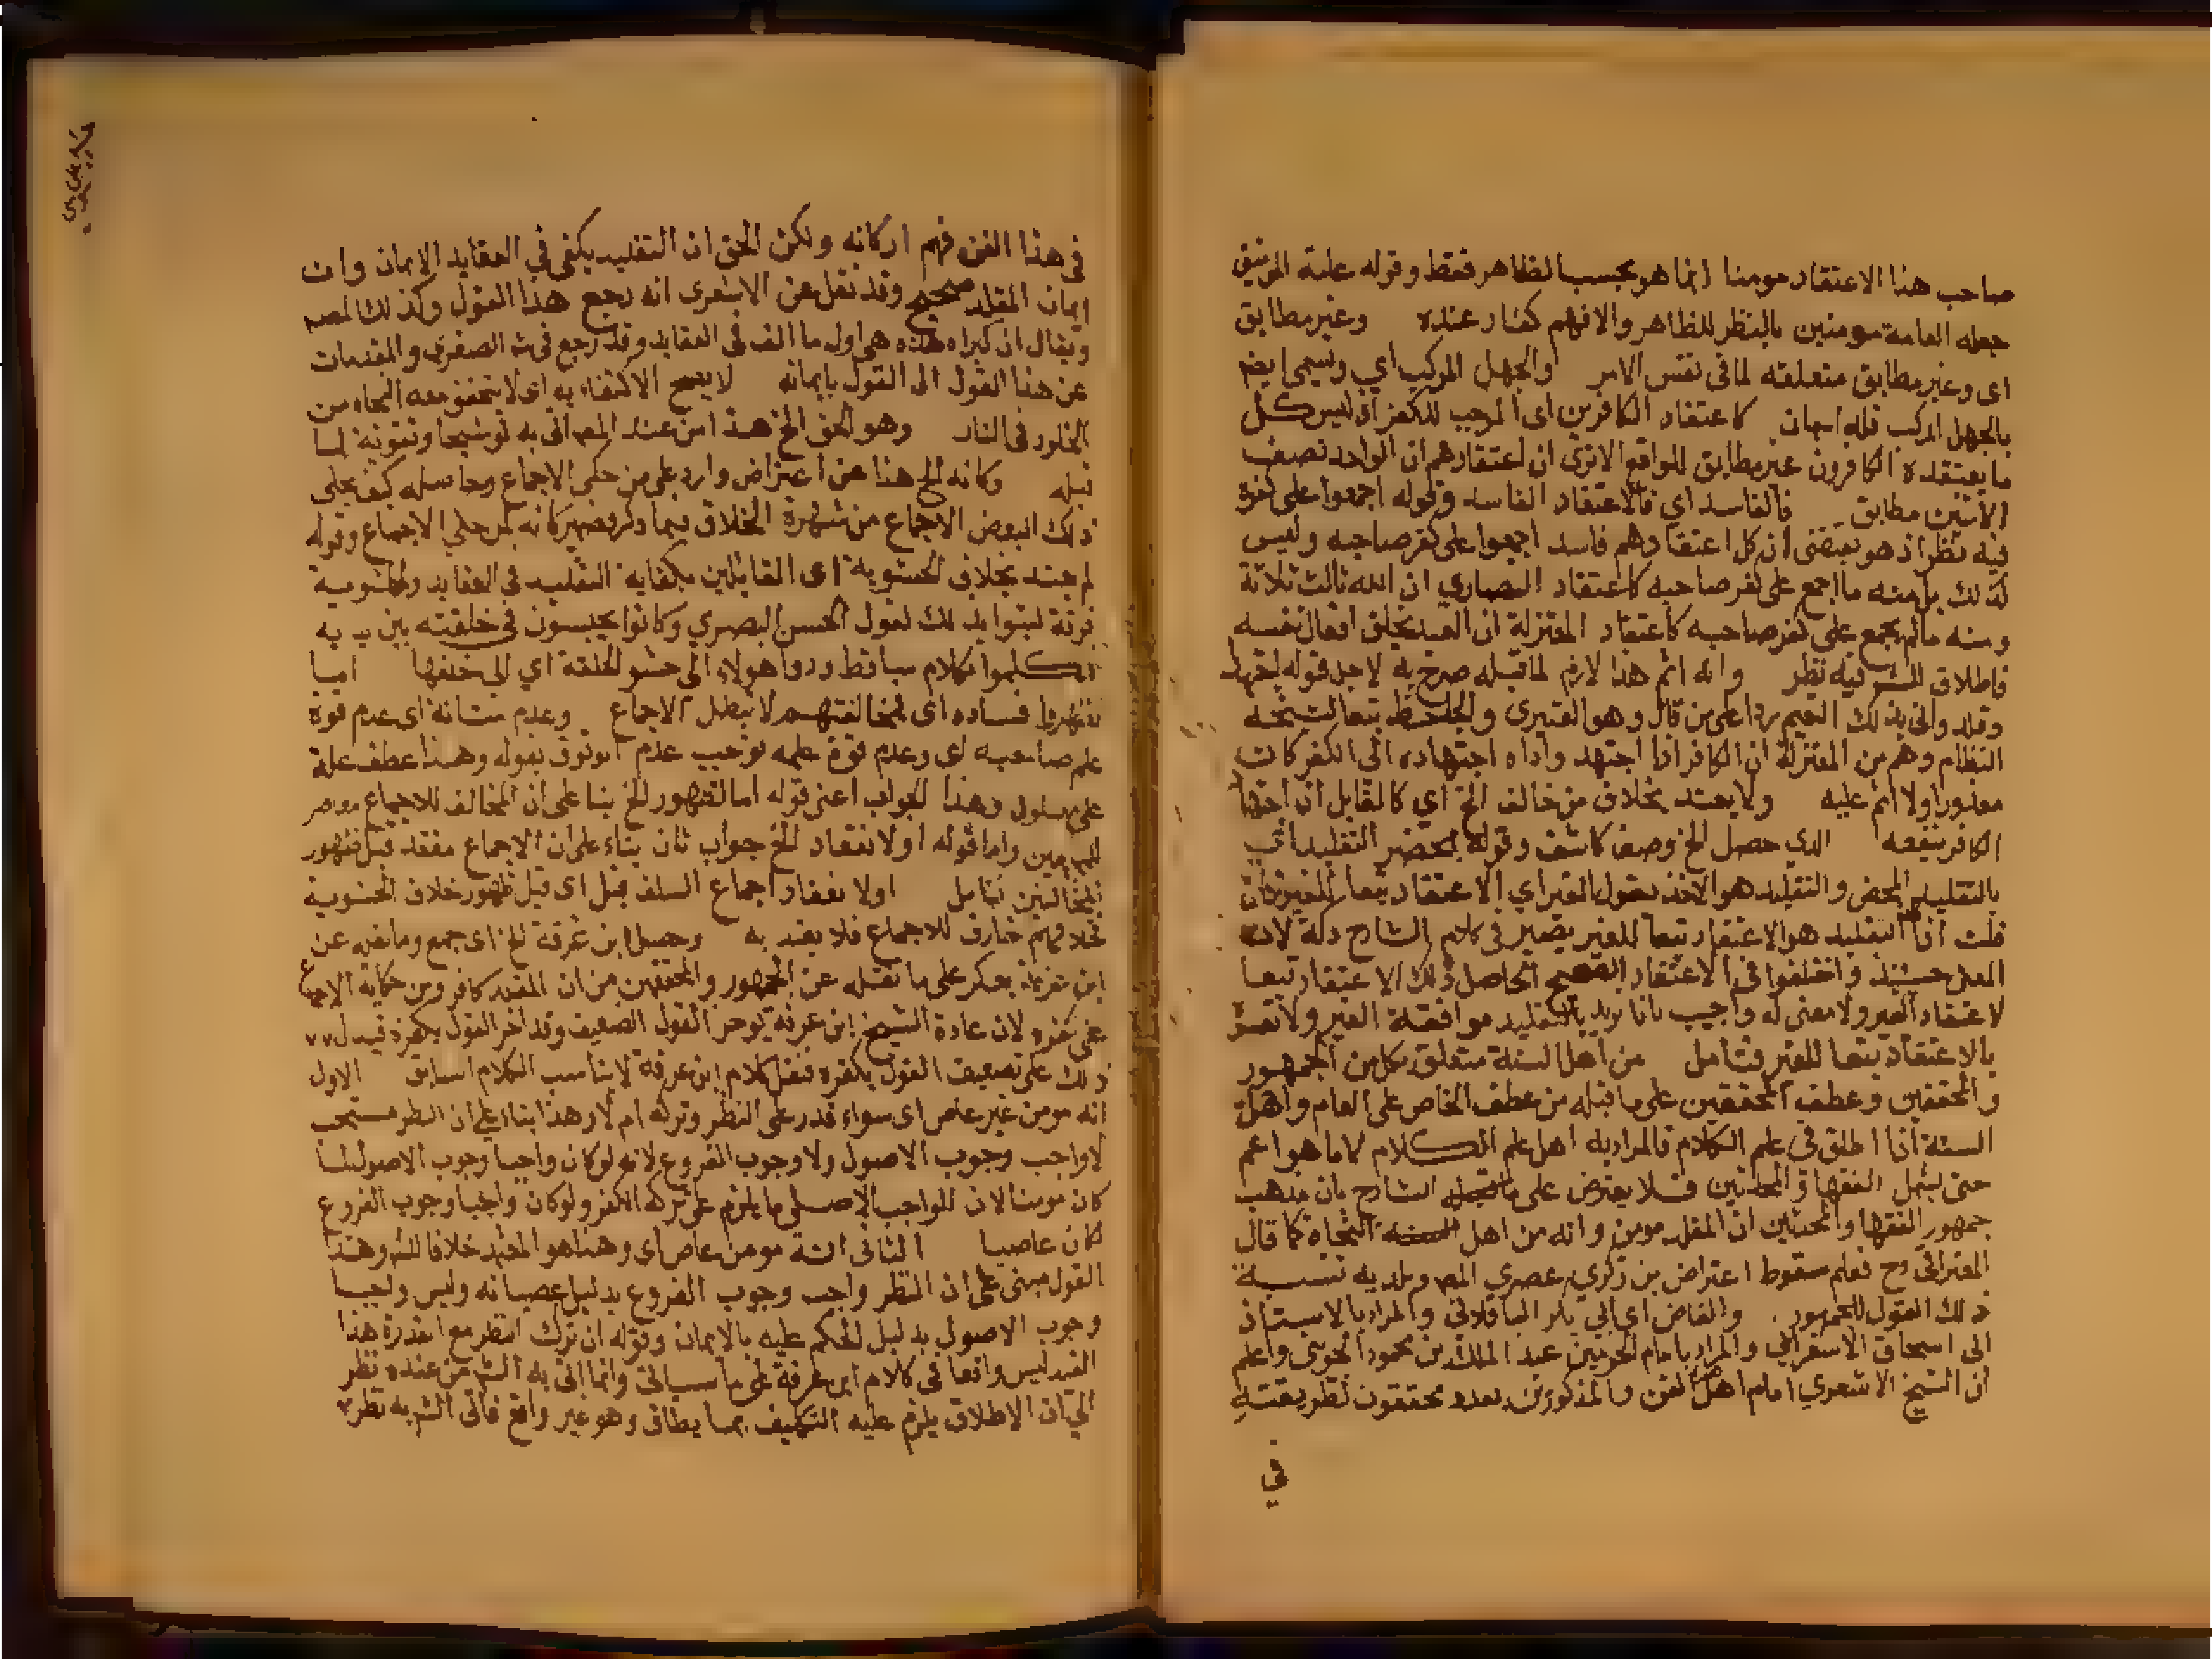 صاحب هذا الاعتقاد مومنا انما هو بحسب الظاهر فقط وقوله علية
جعله العامة مومنين بالنظر للظاهر والا فهم كفار عنده وغير مطابق
اى وغير مطابق متعلقه لما فى نفس الامر والجهل المركب اي ويسمى ايضا
بالجهل المركب فله اسمان كاعتقاد الكافرين اى الموجب للكفر اذ ليس كل
ما يعتقده الكافرون غير مطابق للواقع الا ترى ان اعتقادهم ان الواحد نصف
الاثنين مطابق فالفاسد اي فالاعتقاد الفاسد وقوله اجمعوا على كفره
فيه نظر اذ هو يقتضى ان كل اعتقادهم فاسد اجمعوا على كفر صاحبه وليس
كذلك بل منه ما اجمع على كفر صاحبه كاعتقاد النصاري ان الله ثالث ثلاثة
ومنه ما لم يجمع على كفر صاحبه كاعتقاد المعتزلة ان العبد يخلق افعال نفسه
فاطلاق الشر فيه نظر وانه اثم هذا لازم لما قبله صرح به لاجل قوله اجتهد
وقلد واتى بذلك التعميم ردا على من قال وهو العنبرى والجاحظ تبعا لشيخه
النظام وهم من المعتزلة ان الكافر اذا اجتهد واداه اجتهاده الى الكفر كان
معذورا ولا اثم عليه ولا يعتد بخلاف من خالف الخ اي كالقايل ان اجتهاد
الكافر ينفعه الذي حصل الخ وصف كاشف وقوله بمحض التقليد اى
بالتقليد المحض والتقليد هو الاخذ بقول الغير اي الاعتقاد تبعا للغير فان
قلت اذا كان التقليد هو الاعتقاد تبعا للغير يصير فى كلام الشارح ركة لان
المعنى حينئذ واختلفوا فى الاعتقاد الصحيح الحاصل ذلك الاعتقاد تبعا
لاعتقاد الغير ولا معنى له واجيب بانا نريد بالتقليد موافقة الغير ولا نفسر
بالاعتقاد تبعا للغير فتأمل من اهل السنة متعلق بكل من الجمهور
والمحققين وعطف المحققين على ما قبله من عطف الخاص على العام واهل
السنة اذا اطلق في علم الكلام فالمراد به اهل علم الكلام لا ما هو اعم
حتى يشمل الفقها والمحدثين فلا يعترض على ما الشارح بان مذهب
جمهور الفقها والمحدثين ان المقلد مومن وانه من اهل النجاة كما قال
وح فعلم سقوط اعتراض بن زكري عصري المص وبلديه نسبة
ذلك القول للجمهور والقاض اي ابي بكر الباقلانى والمراد بالاستاذ
ابى اسحاق الاسفراينى والمراد بامام الحرمين عبد الملك بن الجويني واعلم
ان الشيخ الاشعري امام اهل الفن والمذكورين بعده محققون لطريقته
في
فى هذا الفن فهم اركانه ولكن الحق ان التقليد يكفى في العقايد الايمان وان
ايمان المقلد صحيح وقد نقل عن الاشعرى انه رجع هذا القول وكذلك المص
ويقال ان كبراه هذه هى اول ما الف فى العقايد وقد رجع فى ش الصغرى والمقدمات
عن هذا القول الى القول بايمانه لا يصح الاكتفاء به اى لا يتحقق معه النجاه من
الخلود فى النار وهو الحق الخ هذا من عند المص اتى به توشيحا وتقوية لما
قبله وكانه الخ هذا عن اعتراض وارد على من حكى الاجماع وحاصله كيف يحكى
ذلك البعض الاجماع من شهرة الخلاف فيما ذكر وضمير كانه لمن حكي الاجماع وقوله
لم يعتد بخلاف الحشوية اى القايلين بكفاية التقليد فى العقايد والحشوية
فرقة لقول الحسن البصري وكانوا يجلسون في حلقته بين يديه
تكلموا بكلام ساقط ردوا هولاء الى حشو الحلقة اي الى خلفها اما
لظهور فساده اى لمخالفتهم لا يبطل الاجماع وعدم متانة اى عدم قوة
علم صاحبه اى وعدم قوة علمه توجب عدم الوثوق بقوله وهذا عطف علة
على معلول وهذا الجواب اعنى قوله اما لظهور الخ بنا على ان المخالف للاجماع معاصر
للمجمعين واما قوله او لانعقاد الخ جواب ثان بناء على ان الاجماع منعقد قبل ظهور
المخالفين تامل او لانعقاد اجماع السلف قبل اى قبل ظهور خلاف الحشوية
فخلافهم خارق للاجماع فلا يعتد به وحصل ابن عرفة الخ اى جمع وما نقله عن
ابن عرفة يعكر على ما نقله عن الجمهور والمحققين من ان المقلد كافر ومن حكاية الاجماع
على كفره لان عادة الشيخ ابن عرفة يوخر القول الضعيف وقد اخر القول بكفره فيدل
ذلك على تضعيف القول بكفره فنقل كلام ابن عرفة لا يناسب الكلام السابق الاول
انه مومن غير عاص اى سواء قدر على النظر وتركه ام لا وهذا بناء على ان النظر مستحب
لا واجب وجوب الاصول ولا وجوب الفروع لانه لو كان واجبا وجوب الاصول لما
كان مومنا لان الواجب الاصلى ما يلزم على تركه الكفر ولو كان واجبا وجوب الفروع
كان عاصيا الثانى انه مومن عاص اى وهذا هو المعتمد خلافا للش وهذا
القول مبنى على ان النظر واجب وجوب الفروع بدليل عصيانه وليس واجبا
وجوب الاصول بدليل الحكم عليه بالايمان وقوله ان ترك النظر مع القدرة هذا
القيد ليس واقعا فى كلام ابن عرفة على ما سياتى وانما اتى به الش من عنده نظر
الي ان الاطلاق يلزم عليه التكليف بما يطاق وهو غير واقع فاتى الش به نظرا